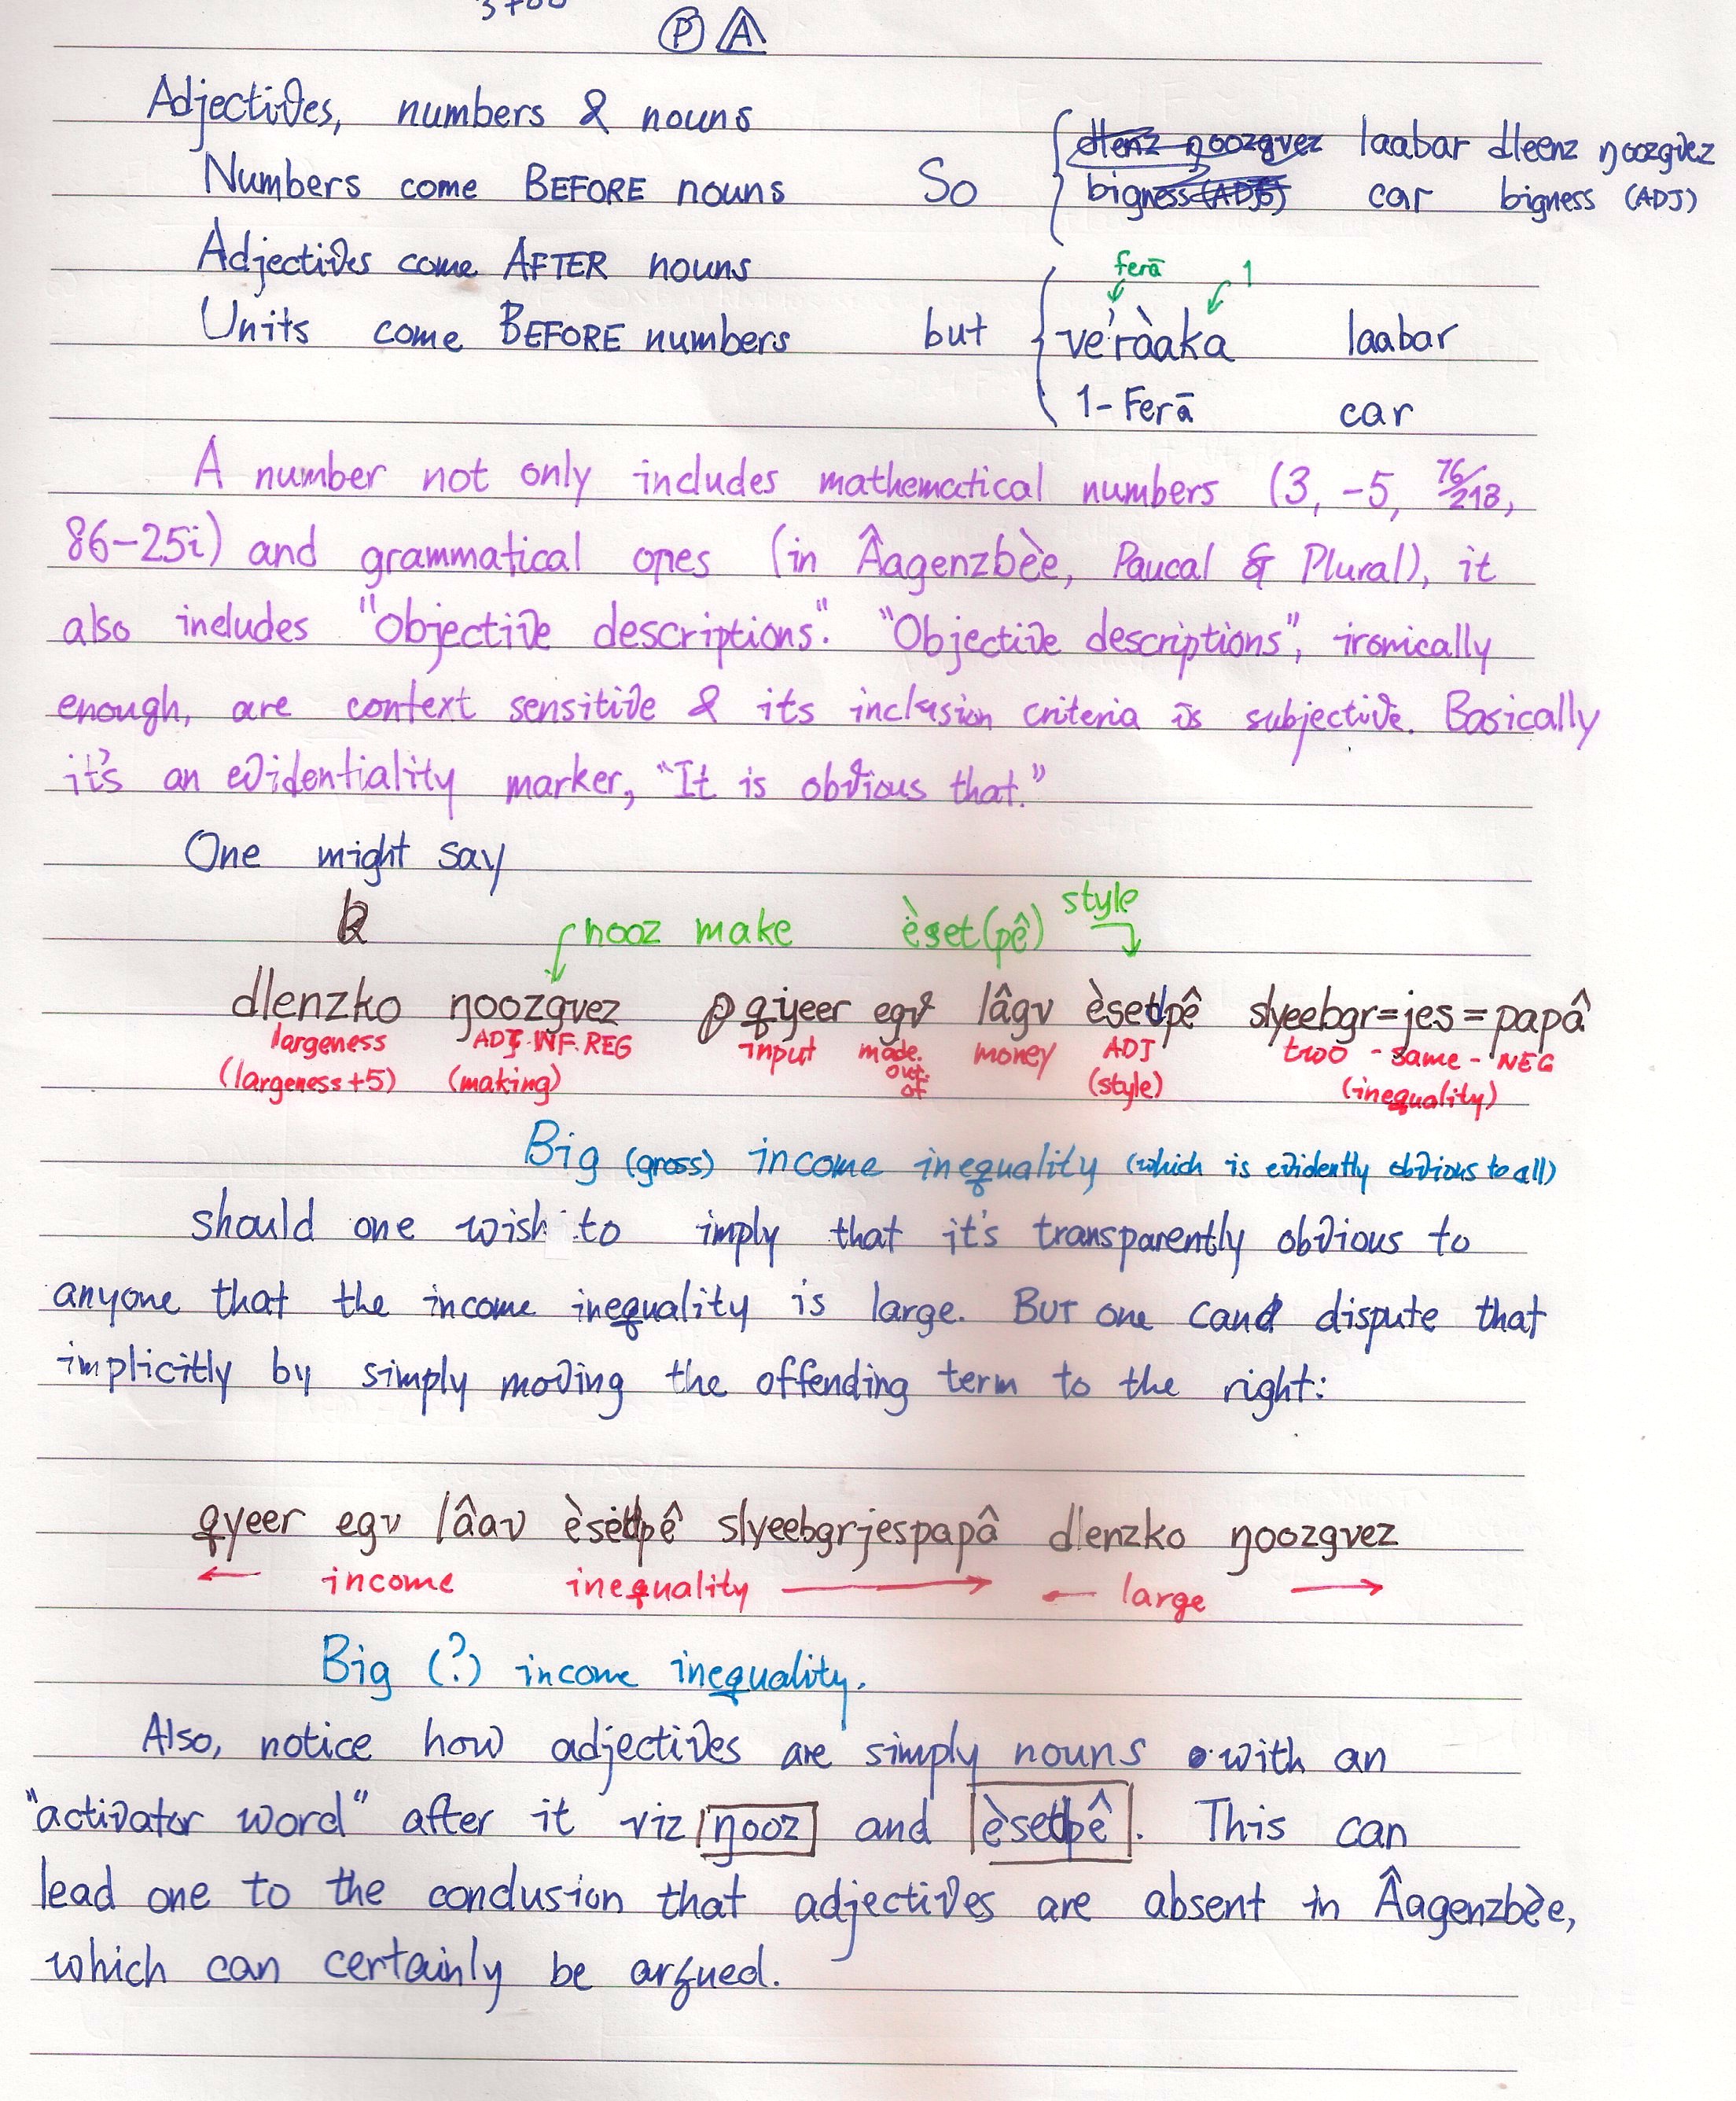 Ⓟ A
Adjectives, numbers & nouns
Numbers come BEFORE nouns So dlenz ŋoozgvez laabar dleenz ŋoozgvez
bigness (ADJ) car bigness (ADJ)
Adjectives come AFTER nouns ferā 1
Units come BEFORE numbers but ve'ràaka laabar
1-Ferā car
A number not only includes mathematical numbers (3, -5, 76/218,
86-25i) and grammatical ones (in Âagenzbèe, Paucal & Plural), it
also includes "Objective descriptions". "Objective descriptions", ironically
enough, are context sensitive & its inclusion criteria is subjective. Basically
it's an evidentiality marker, "It is obvious that."
One might say
ŋooz make èset(pê) style
dlenzko ŋoozgvez qyeer egv lâgv èsetpê slyeebgr=jes=papâ
largeness ADJ INF.REG input made.out.of money ADJ two-same-NEG
(largeness+5) (making) (style) (inequality)
Big (gross) income inequality (which is evidently obvious to all)
should one wish to imply that it's transparently obvious to
anyone that the income inequality is large. But one can dispute that
implicitly by simply moving the offending term to the right:
qyeer egv lâav èsetpê slyeebgrjespapâ dlenzko ŋoozgvez
← income inequality → ← large →
Big (?) income inequality.
Also, notice how adjectives are simply nouns with an
"activator word" after it viz ŋooz and èsetpê. This can
lead one to the conclusion that adjectives are absent in Âagenzbèe,
which can certainly be argued.